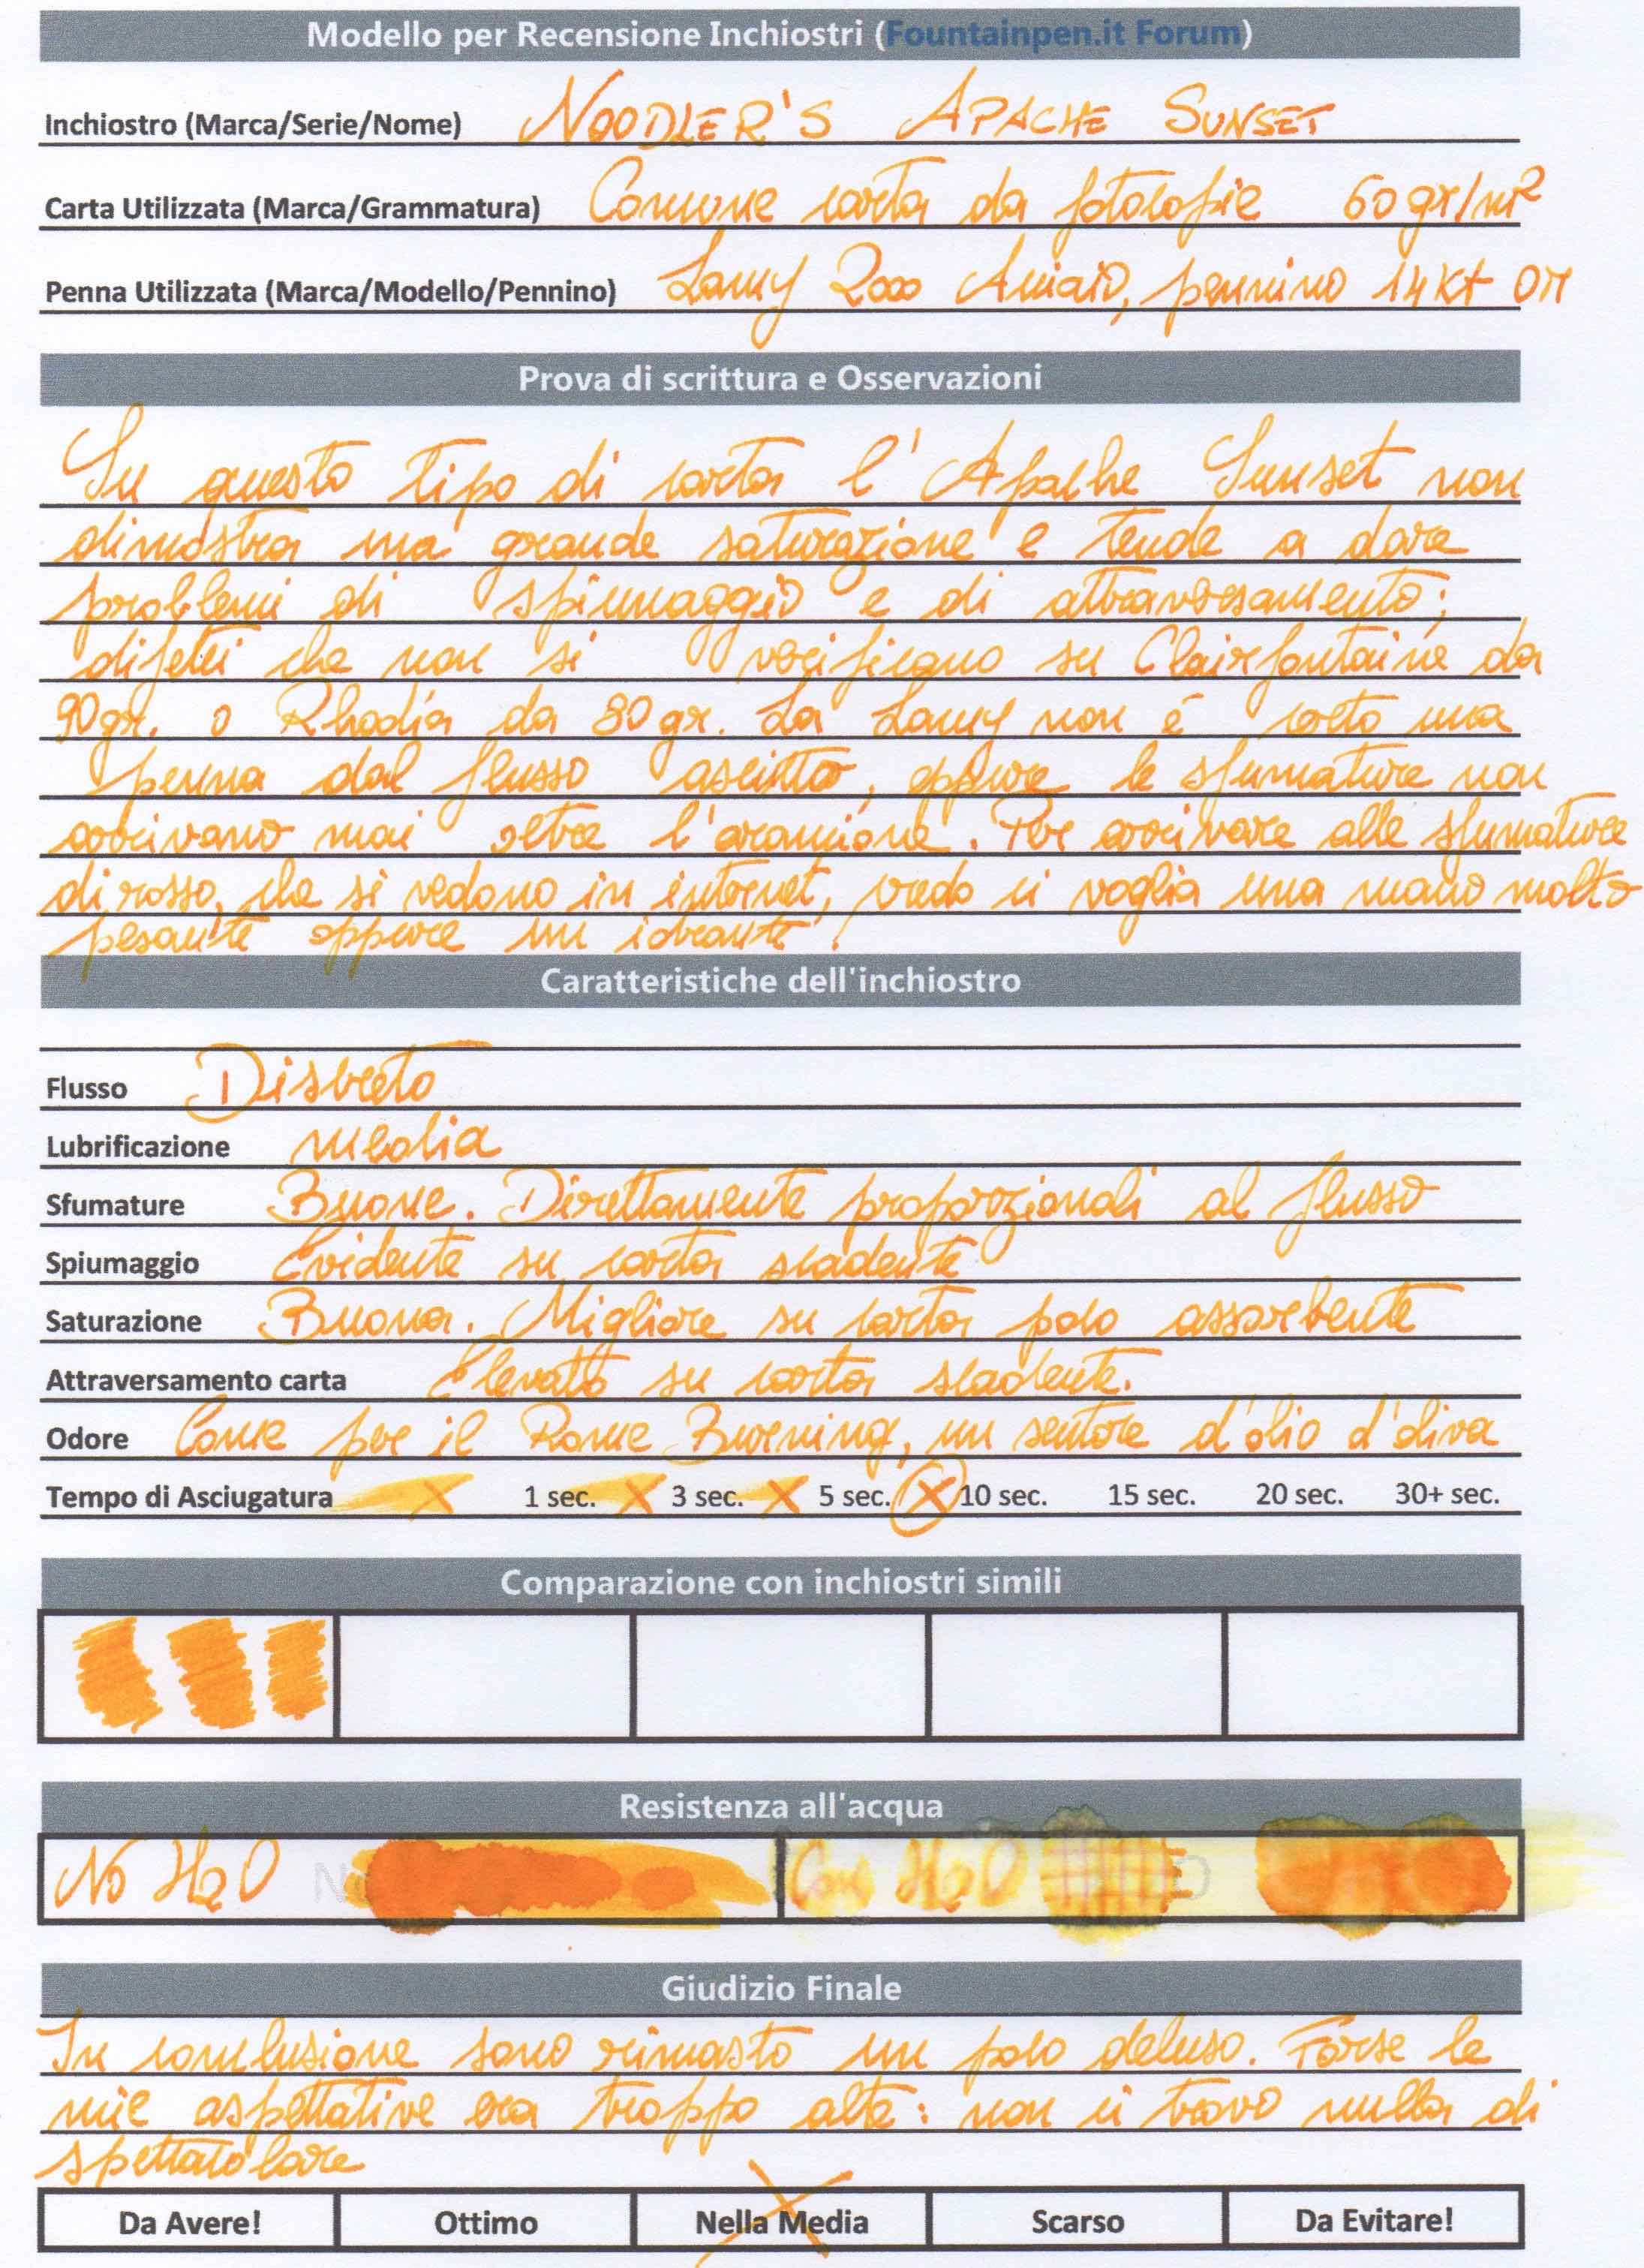 Modello per Recensione Inchiostri (Fountainpen.it Forum)
Inchiostro (Marca/Serie/Nome) NOODLER'S APACHE SUNSET
Carta Utilizzata (Marca/Grammatura) Comune carta da fotocopie 60 gr/m²
Penna Utilizzata (Marca/Modello/Pennino) Lamy 2000 Acciaio, pennino 14Kt
Prova di scrittura e Osservazioni
Su questo tipo di carta l'Apache Sunset non
dimostra una grande saturazione e tende a dare
problemi di spiumaggio e di attraversamento;
difetti che non si verificano su Clairfontaine da
90gr. o Rhodia da 80gr. La Lamy non è certo una
penna dal flusso asciutto, eppure le sfumature non
arrivano mai oltre l'arancione. Per arrivare alle sfumature
di rosso, che si vedono in internet, credo ci voglia una mano molto
pesante oppure un idrante!
Caratteristiche dell'inchiostro
Flusso Discreto
Lubrificazione media
Sfumature Buone. Direttamente proporzionali al flusso
Spiumaggio Evidente su carta scadente
Saturazione Buona. Migliore su carta poco assorbente
Attraversamento carta Elevato su carta scadente.
Odore Come per il Rome Burning, un sentore d'olio d'oliva
Tempo di Asciugatura X 1 sec. X 3 sec. X 5 sec. X 10 sec. 15 sec. 20 sec. 30+ sec.
Comparazione con inchiostri simili
Resistenza all'acqua
No H2O Con H2O
Giudizio Finale
In conclusione sono rimasto un poco deluso. Forse le
mie aspettative era troppo alte: non ci trovo nulla di
spettacolare
Da Avere! Ottimo Nella Media Scarso Da Evitare!